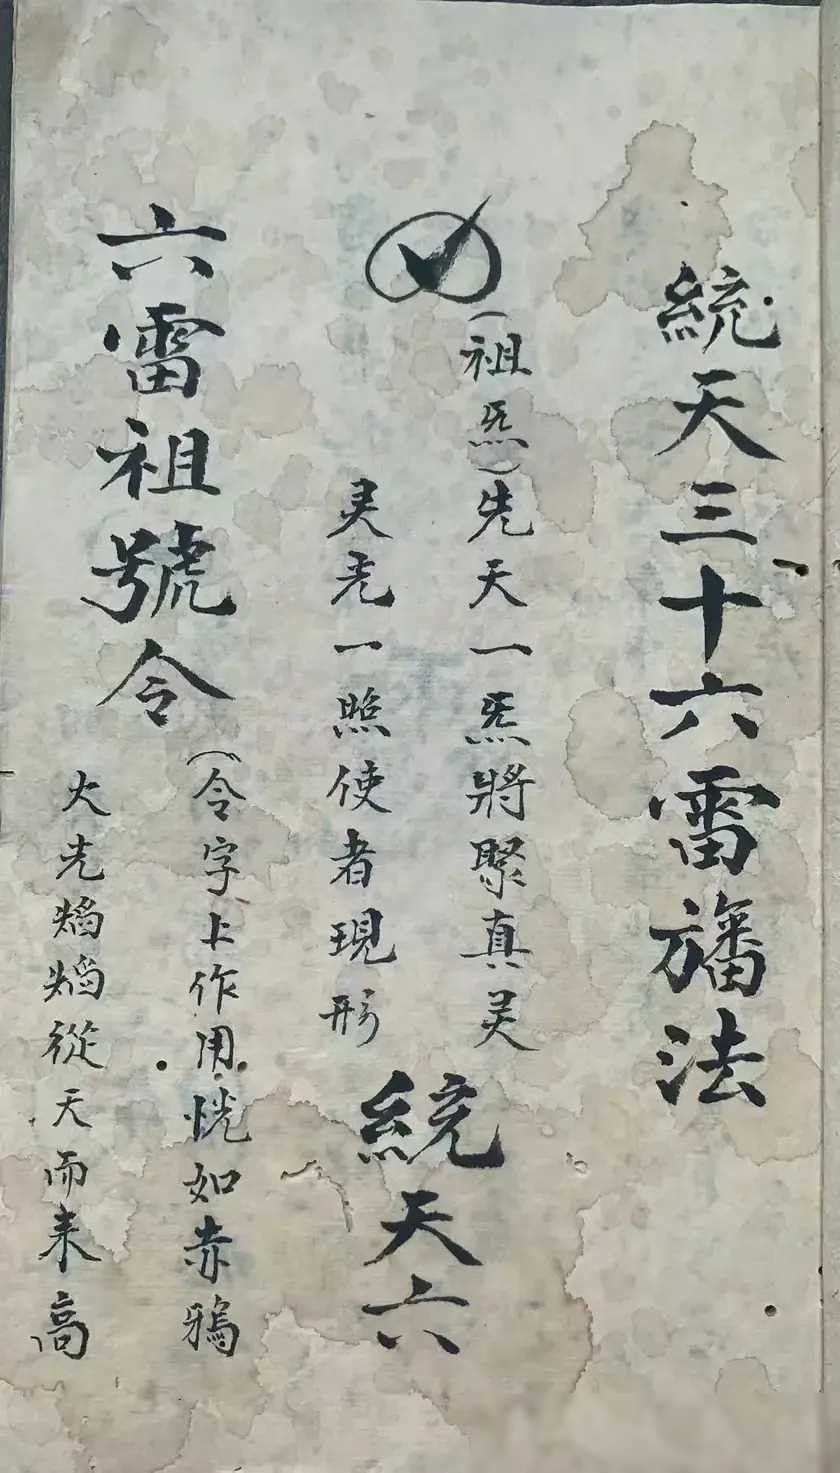 統天三十六雷旛法
(祖炁)先天一炁將聚真灵
灵光一照使者現形
統天六
六雷祖號令
(令字上作用恍如赤鴉
火光熖熖從天而来高